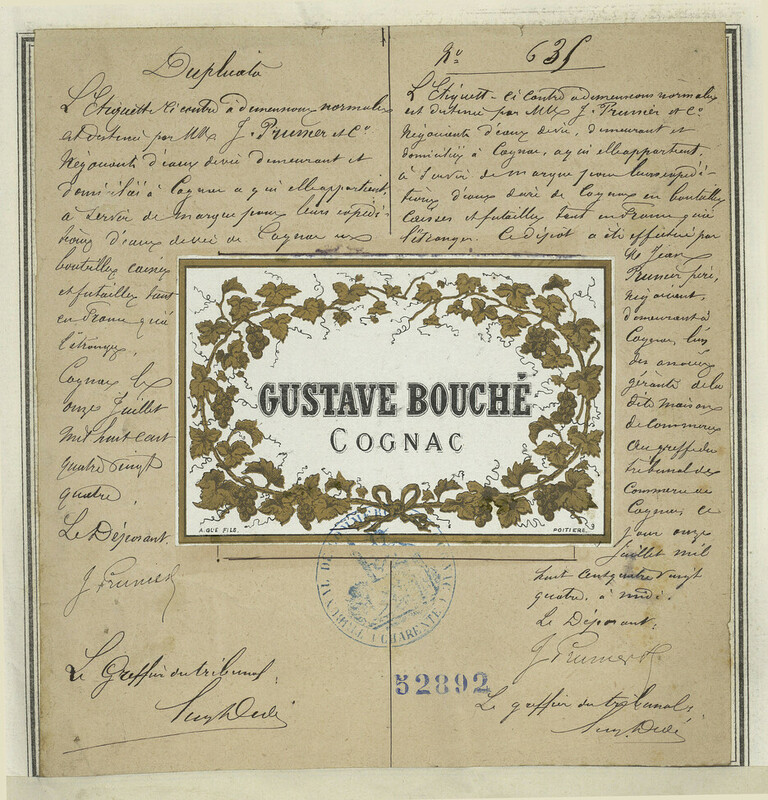 Duplicata
L'Etiquette ci contre à dimensions normales
est destinée par MMrs J. Prunier et Cie
Négociants d'eaux de vie demeurant et
domiciliés à Cognac à qui elle appartient,
à servir de marque pour leurs expédi-
tions d'eaux de vie de Cognac en
bouteilles caisses
et futailles tant
en France qu'à
l'étranger.
Cognac le
onze Juillet
mil huit cent
quatre vingt
quatre.
Le Déposant
J Prunier
Le Greffier du tribunal:
No 635
L'Etiquette ci contre à dimensions normales
est destinée par MMrs J. Prunier et Cie
Négociants d'eaux de vie, demeurant et
domiciliés à Cognac, à qui elle appartient,
à servir de marque pour leurs expédi-
tions d'eaux de vie de Cognac en bouteilles
caisses et futailles tant en France qu'à
l'étranger. Ce dépôt a été effectué par
Mr Jean
Prunier père,
Négociant,
demeurant à
Cognac, l'un
des associés
gérants de la
dite maison
de commerce
au greffe du
tribunal de
Commerce de
Cognac, ce
jour onze
Juillet mil
huit cent quatre vingt
quatre à midi.
Le Déposant:
J Prunier
Le greffier du tribunal:
GUSTAVE BOUCHÉ
COGNAC
A. QUE FILS.
POITIERS
52892